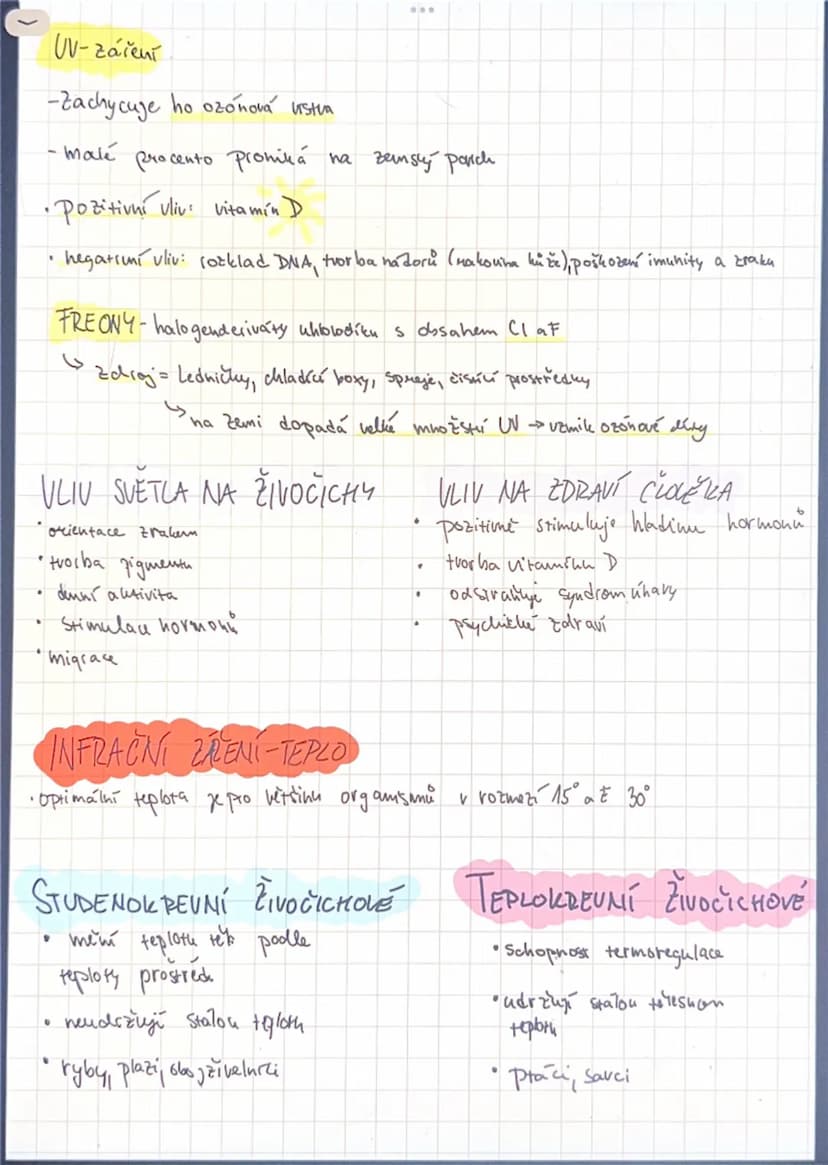 UV-záření
-Zachycuje ho ozónová vrstva
- malé procento proniká na zemský povrch
• pozitivní vliv: vitamín D
• negativní vliv: rozklad DNA, tvorba nádorů (rakovina kůže), poškození imunity a zraku
FREONY - halogenderiváty uhlovodíku s obsahem Cl a F
↳ zdroj = Ledničky, chladící boxy, spreje, čisticí prostředky
↳ na Zemi dopadá velké množství UV → vznik ozónové díry
VLIV SVĚTLA NA ŽIVOČICHY
• orientace zrakem
• tvorba pigmentu
• denní aktivita
• Stimulace hormonů
• migrace
VLIV NA ZDRAVÍ ČLOVĚKA
• pozitivně stimuluje hladinu hormonů
• tvorba vitamínu D
• odstraňuje syndrom únavy
• psychické zdraví
INFRAČNÍ ZÁŘENÍ-TEPLO
• optimální teplota je pro většinu organismů v rozmezí 15° až 30°
STUDENOKREVNÍ ŽIVOČICHOVÉ
• mění teplotu těl podle
teploty prostřed.
• neudržují stálou teplotu
• ryby, plazi, obojživelníci
TEPLOKREVNÍ ŽIVOČICHOVÉ
• Schopnost termoregulace
• udržují stálou tělesnou
teplotu
• Ptáci, savci